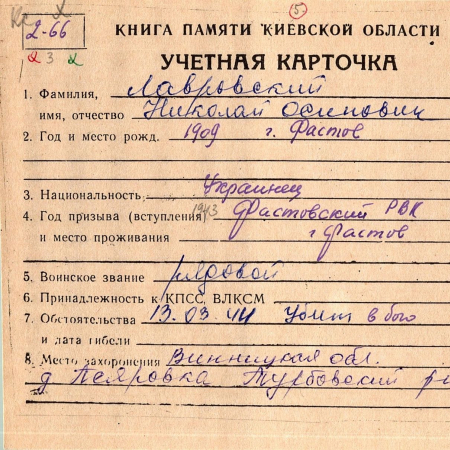 2-66
5
КНИГА ПАМЯТИ КИЕВСКОЙ ОБЛАСТИ
3
УЧЕТНАЯ КАРТОЧКА
1. Фамилия, Лавровский
имя, отчество Николай Осипович
2. Год и место рожд. 1909 г. Фастов
3. Национальность Украинец
4. Год призыва (вступления) 1943 Фастовский РВК
и место проживания г. Фастов
5. Воинское звание рядовой
6. Принадлежность к КПСС, ВЛКСМ
7. Обстоятельства 13.03.44 Убит в бою
и дата гибели
8. Место захоронения Винницкая обл.
Турбовский